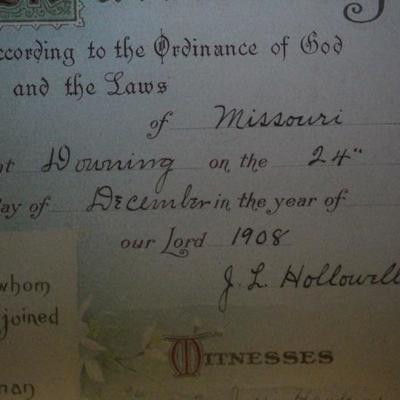 according to the Ordinance of God
and the Laws
of Missouri
at Downing on the 24"
day of December in the year of
our Lord 1908
J. L. Hollowell
whom
joined
man
WITNESSES